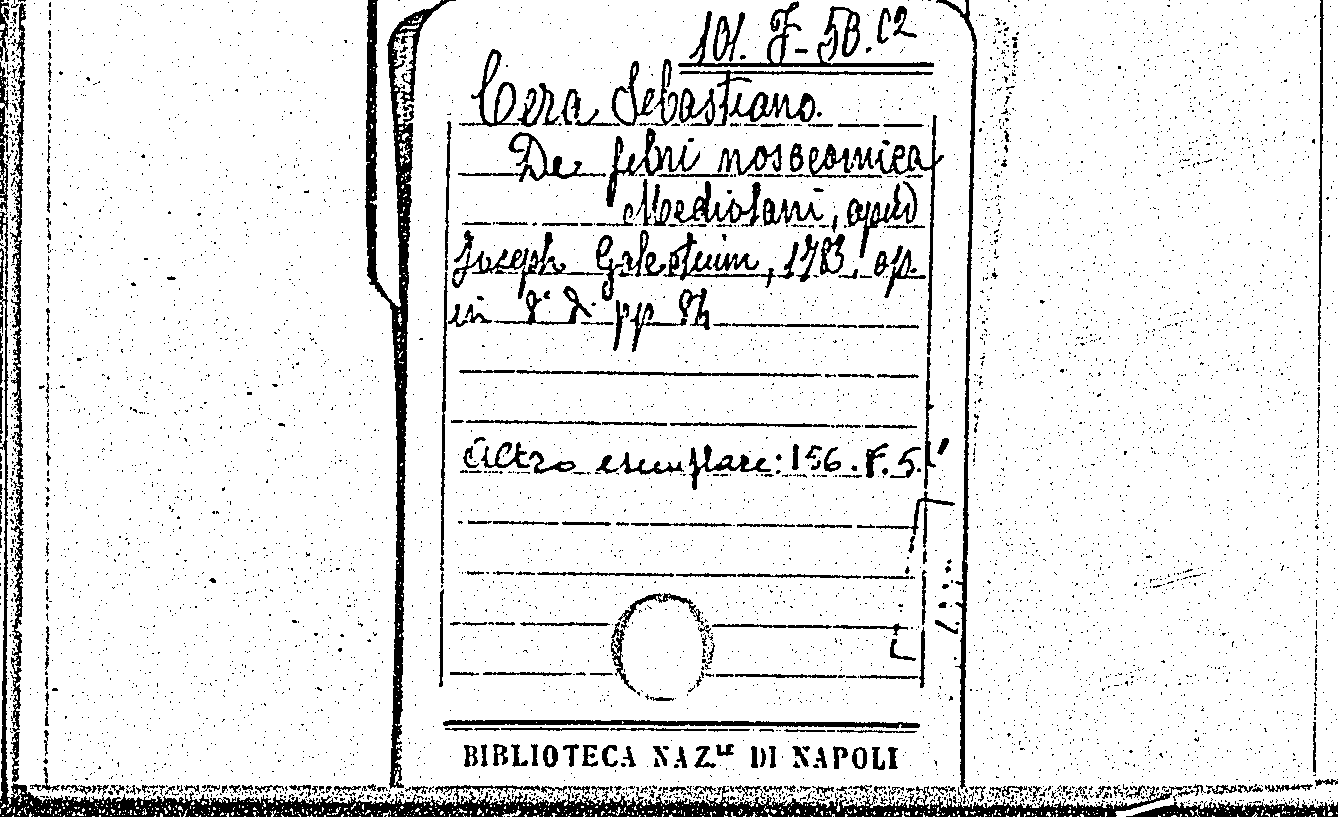 101. F-5B.C2
Cera Sebastiano.
De febri nosocomica
Mediolani, apud
Joseph Galeatium, 1783, op.
in 8° pp 84
Altro esemplare: 156. F. 5.
BIBLIOTECA NAZ.LE DI NAPOLI